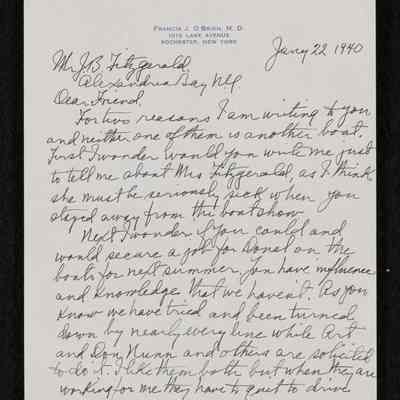 FRANCIS J. O'BRIEN, M. D.
1015 LAKE AVENUE
ROCHESTER, NEW YORK
Jany 22 1940
Mr J.B. Fitzgerald,
Alexandria Bay N.Y.
Dear Friend,
For two reasons I am writing to you
and neither one of them is another boat.
First I wonder would you write me just
to tell me about Mrs Fitzgerald, as I think
she must be seriously sick when you
stayed away from the boatshow.
Next I wonder if you could and
would secure a job for on the
boats for next summer, you have influence
and knowledge that we haven't. As you
know we have tried and been turned
down by nearly every line while Art
and Don Nunn and others are solicited
to do it. I like them both but when they are
working for me they have to quit to drive